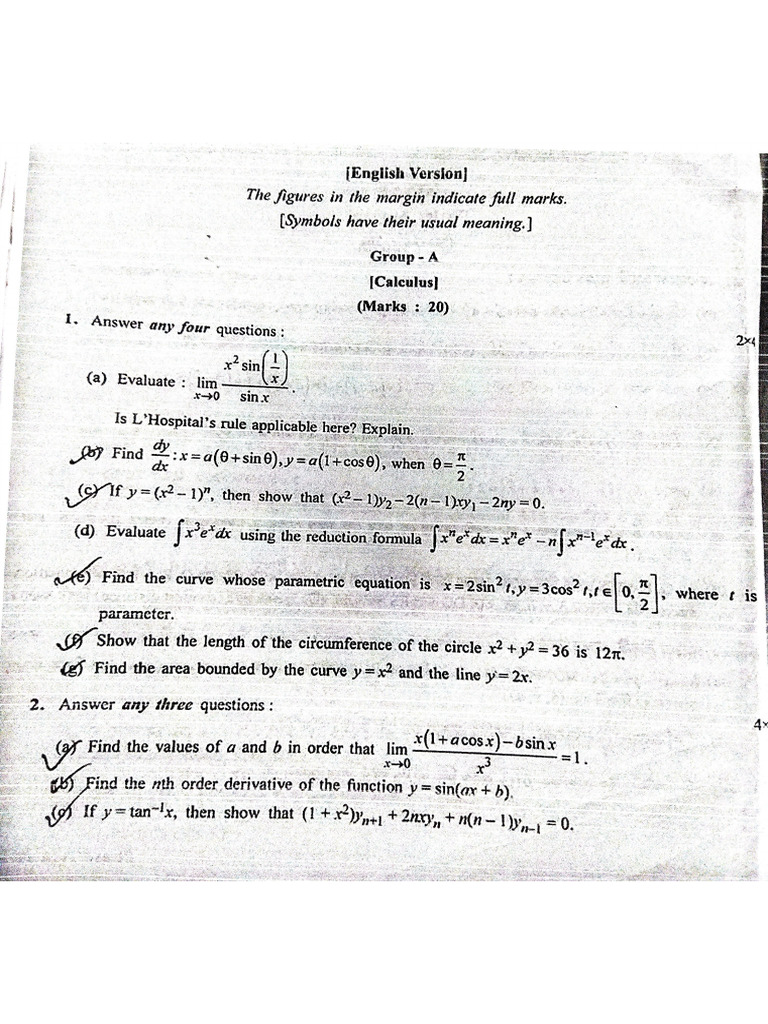 [English Version]
The figures in the margin indicate full marks.
[Symbols have their usual meaning.]
Group - A
[Calculus]
(Marks : 20)
1. Answer any four questions : 2×4
(a) Evaluate : lim_{x→0} x² sin(1/x) / sin x .
Is L'Hospital's rule applicable here? Explain.
(b) Find dy/dx : x = a(θ + sin θ), y = a(1 + cos θ), when θ = π/2 .
(c) If y = (x² – 1)ⁿ, then show that (x² – 1)y₂ – 2(n – 1)xy₁ – 2ny = 0.
(d) Evaluate ∫x³eˣdx using the reduction formula ∫xⁿeˣdx = xⁿeˣ – n∫xⁿ⁻¹eˣdx .
(e) Find the curve whose parametric equation is x = 2sin² t, y = 3cos² t, t ∈ [0, π/2], where t is
parameter.
(f) Show that the length of the circumference of the circle x² + y² = 36 is 12π.
(g) Find the area bounded by the curve y = x² and the line y = 2x.
2. Answer any three questions : 4×
(a) Find the values of a and b in order that lim_{x→0} (x(1 + a cos x) – b sin x) / x³ = 1 .
(b) Find the nth order derivative of the function y = sin(ax + b).
(c) If y = tan⁻¹x, then show that (1 + x²)yₙ₊₁ + 2nxyₙ + n(n – 1)yₙ₋₁ = 0.